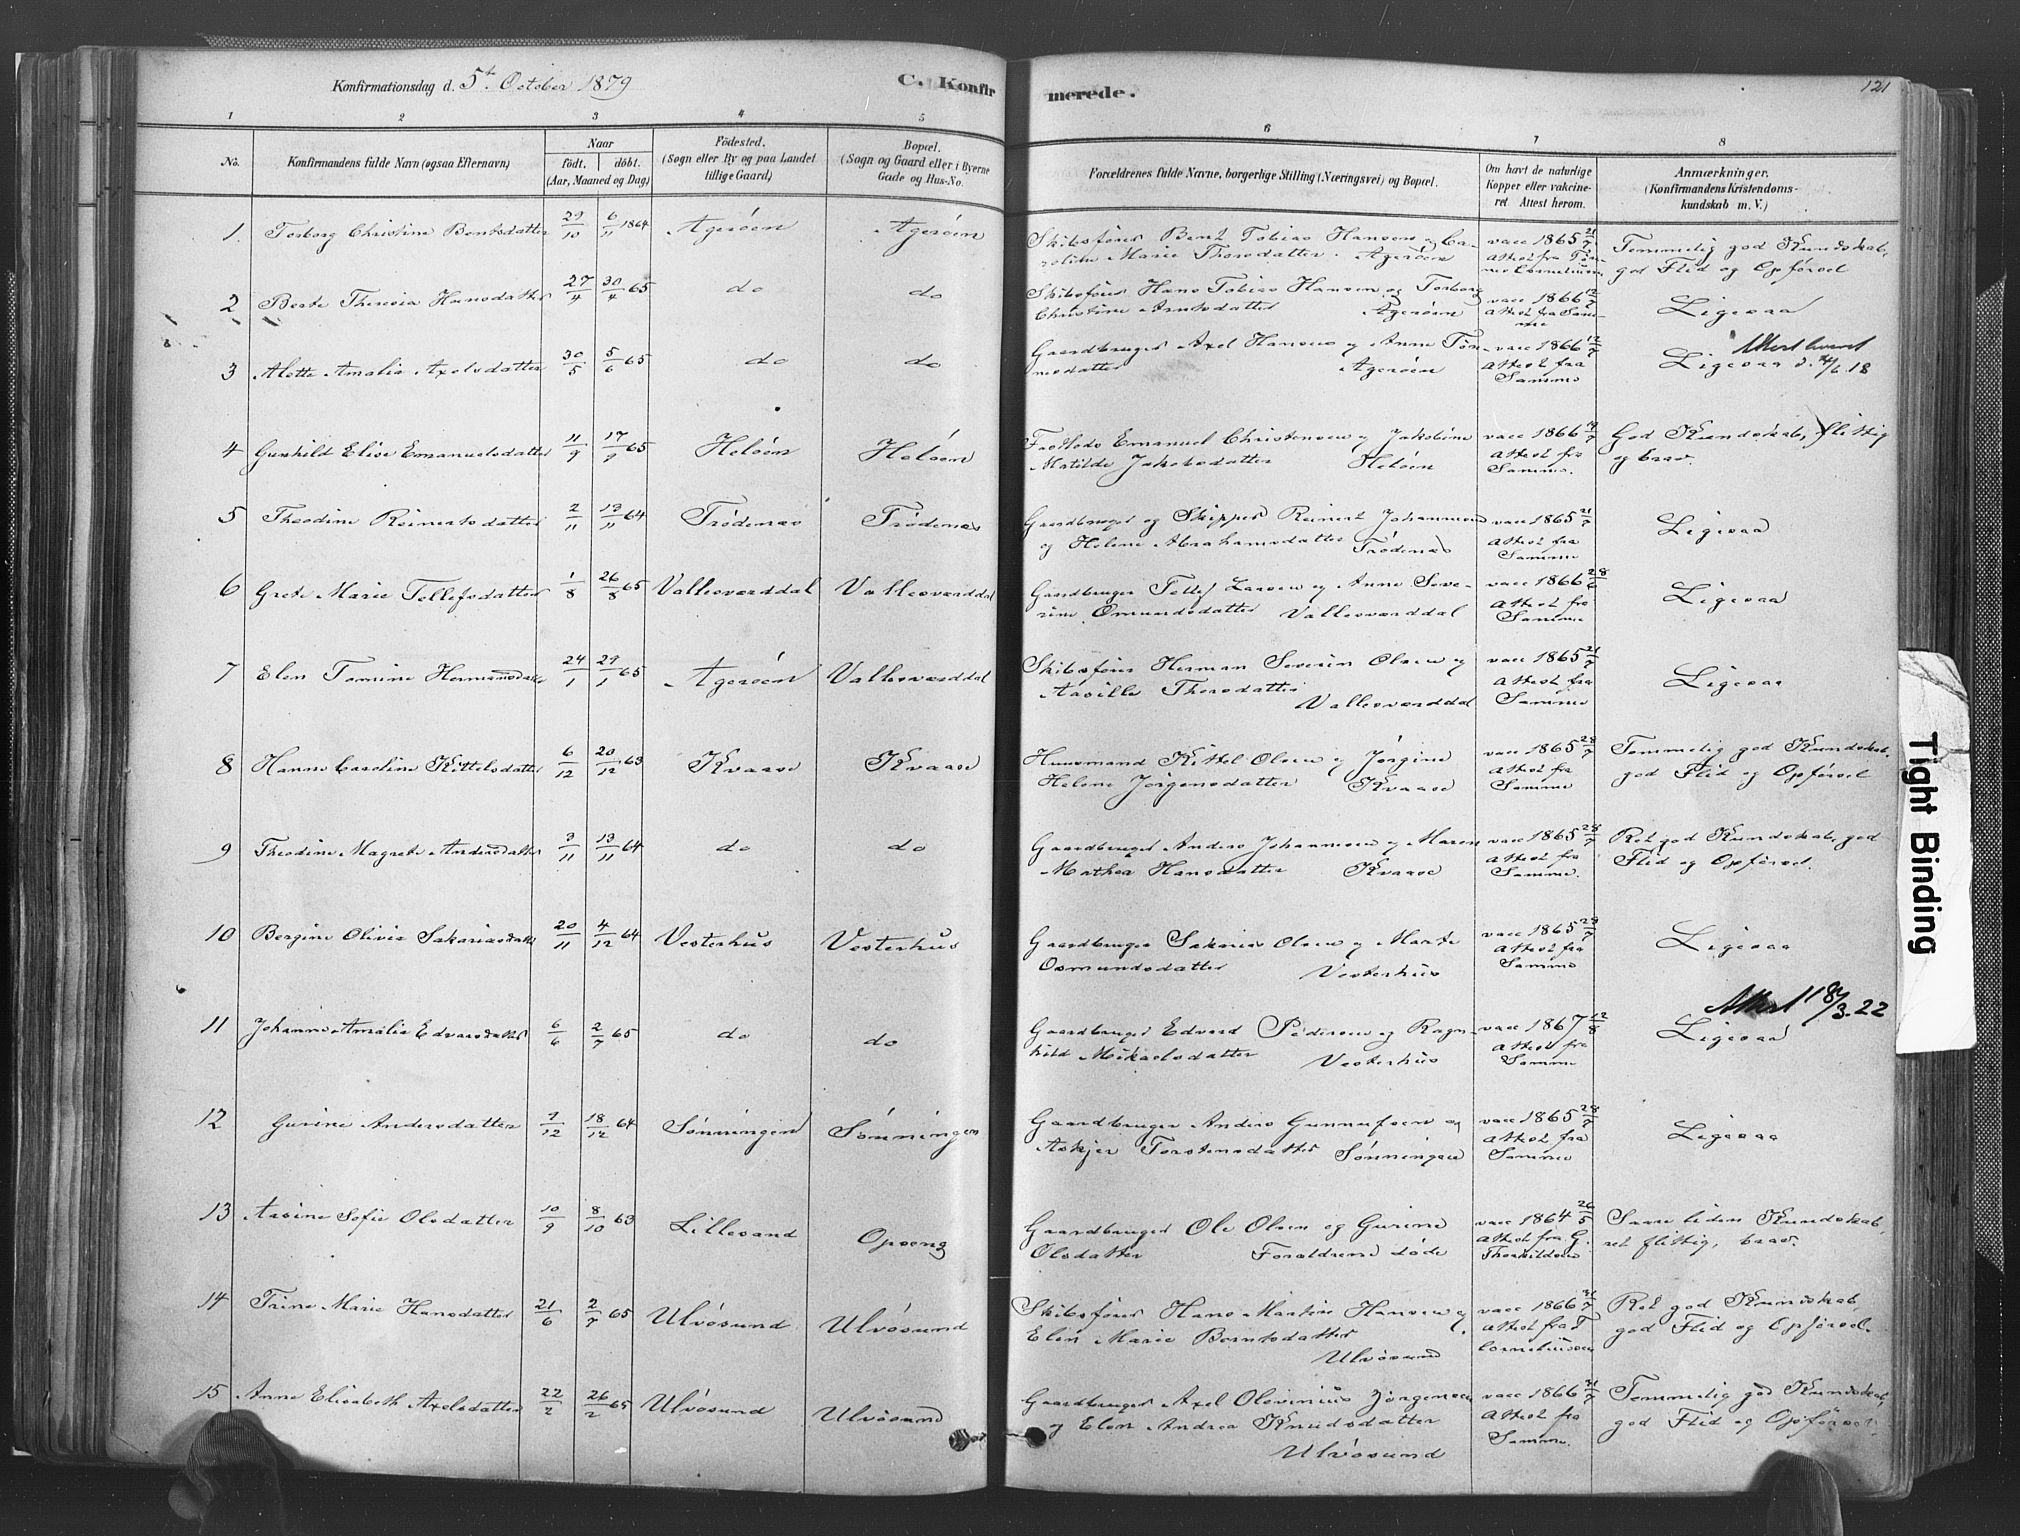 Konfirmationsdag d. 5t October 1879
C. Konfirmerede.
121
1 2 3 4 5 6 7 8
No.
Konfirmandens fulde Navn (ogsaa Efternavn)
Naar
födt. döbt.
(Aar, Maaned og Dag)
Födested.
(Sogn eller By og paa Landet
tillige Gaard)
Bopæl.
(Sogn og Gaard eller i Byerne
Gade og Hus-No.
Forældrenes fulde Navne, borgerlige Stilling (Næringsvei) og Bopæl.
Om havt de naturlige
Kopper eller vakcine-
ret Attest herom.
Anmærkninger.
(Konfirmandens Kristendoms-
kundskab m. V.)
1 Torborg Christine Bentsdatter 29/10 6/11 1864 Agerøen Agerøen Skibsfører Bent Tobias Hansen og Ca- vacc 1865 21/7 Temmelig god Kundskab,
roline Marie Thorsdatter. Agerøen Attest fra Tøn- god Flid og Opførsel
nes Corneliusen
2 Berte Theresia Hansdatter 27/4 30/4 65 do do Skibsfører Hans Tobias Hansen og Torborg vacc 1866 12/7 Ligesaa
Christine Arntsdatter Agerøen Attest fra Sam-
me
3 Alette Amalia Axelsdatter 30/5 5/6 65 do do Gaardbruger Axel Hansen og Anne Tøn- vacc 1866 12/7 Ligesaa
nesdatter Agerøen Attest fra
Samme
4 Gunhild Elise Emanuelsdatter 11/9 17/9 65 Heløen Heløen Emanuel Christensen og Jakobine vacc 1866 God Kundskab, flittig
Matilde Jakobsdatter Heløen Attest fra og brav.
Samme.
5 Theodine Reinertsdatter 2/11 13/11 64 Trødenæs Trødenæs Gaardbruger og Skipper Reinert Johannesen vacc 1865 21/7 Ligesaa
og Helene Abrahamsdatter Trødenæs Attest fra
Samme
6 Grete Marie Tellefsdatter 1/8 26/8 65 Vallesværddal Vallesværddal Gaardbruger Tellef Larsen og Anne Seve- vacc 1866 28/6 Ligesaa
rine Omundsdatter Vallesværddal Attest fra
Samme
7 Elen Tomine Hermansdatter 24/1 29/1 65 Agerøen Vallesværddal Skibsfører Herman Severin Olsen og vacc 1865 21/7 Ligesaa
Aasille Thorsdatter Attest fra
Vallesværddal Samme
8 Hanne Caroline Kittelsdatter 6/12 20/12 63 Kvaase Kvaase Huusmand Kittel Olsen og Jørgine vacc 1865 28/7 Temmelig god Kundskab,
Helene Jørgensdatter Kvaase Attest fra god Flid og Opførsel
Samme
9 Theodine Magrete Andersdatter 3/11 13/11 64 do do Gaardbruger Anders Johannesen og Maren vacc 1865 28/7 Ret god Kundskab, god
Mathea Hansdatter Kvaase Attest fra Flid og Opførsel.
Samme.
10 Bergine Olivia Sakariasdatter 20/11 4/12 64 Vesterhus Vesterhus Gaardbruger Sakarias Olsen og Marte vacc 1865 28/7 Ligesaa
Osmundsdatter Vesterhus Attest fra
Samme
11 Johanne Amalia Edvardsdatter 6/6 2/7 65 do do Gaardbruger Edvard Pedersen og Ragn- vacc 1867 12/8 Ligesaa
hild Mikaelsdatter Vesterhus Attest fra
Samme
12 Gurine Andersdatter 7/12 18/12 64 Sønningen Sønningen Gaardbruger Anders Gunnufsen og vacc 1865 28/7 Ligesaa
Askjer Torstensdatter Sønningen Attest fra
Samme
13 Aasine Sofie Olsdatter 10/9 8/10 63 Lillesand Opseng Gaardbruger Ole Olsen og Gurine vacc 1864 26/5 Saare liden Kundskab,
Olsdatter Forældrene døde Attest fra G. ret flittig, brav.
Thorkildsen
14 Trine Marie Hansdatter 21/6 2/7 65 Ulvøsund Ulvøsund Skibsfører Hans Martin Hansen og vacc 1866 21/7 Ret god Kundskab,
Elen Marie Berntsdatter Attest fra T. god Flid og Opførsel.
Ulvøsund Corneliussen
15 Anne Elisabeth Axelsdatter 22/2 26/2 65 Ulvøsund Ulvøsund Gaardbruger Axel Olevinius Jørgensen vacc 1866 21/7 Temmelig god Kundskab,
og Elen Andrea Knudsdatter Attest fra god Flid og Opførsel.
Ulvøsund Samme.
Tight Binding